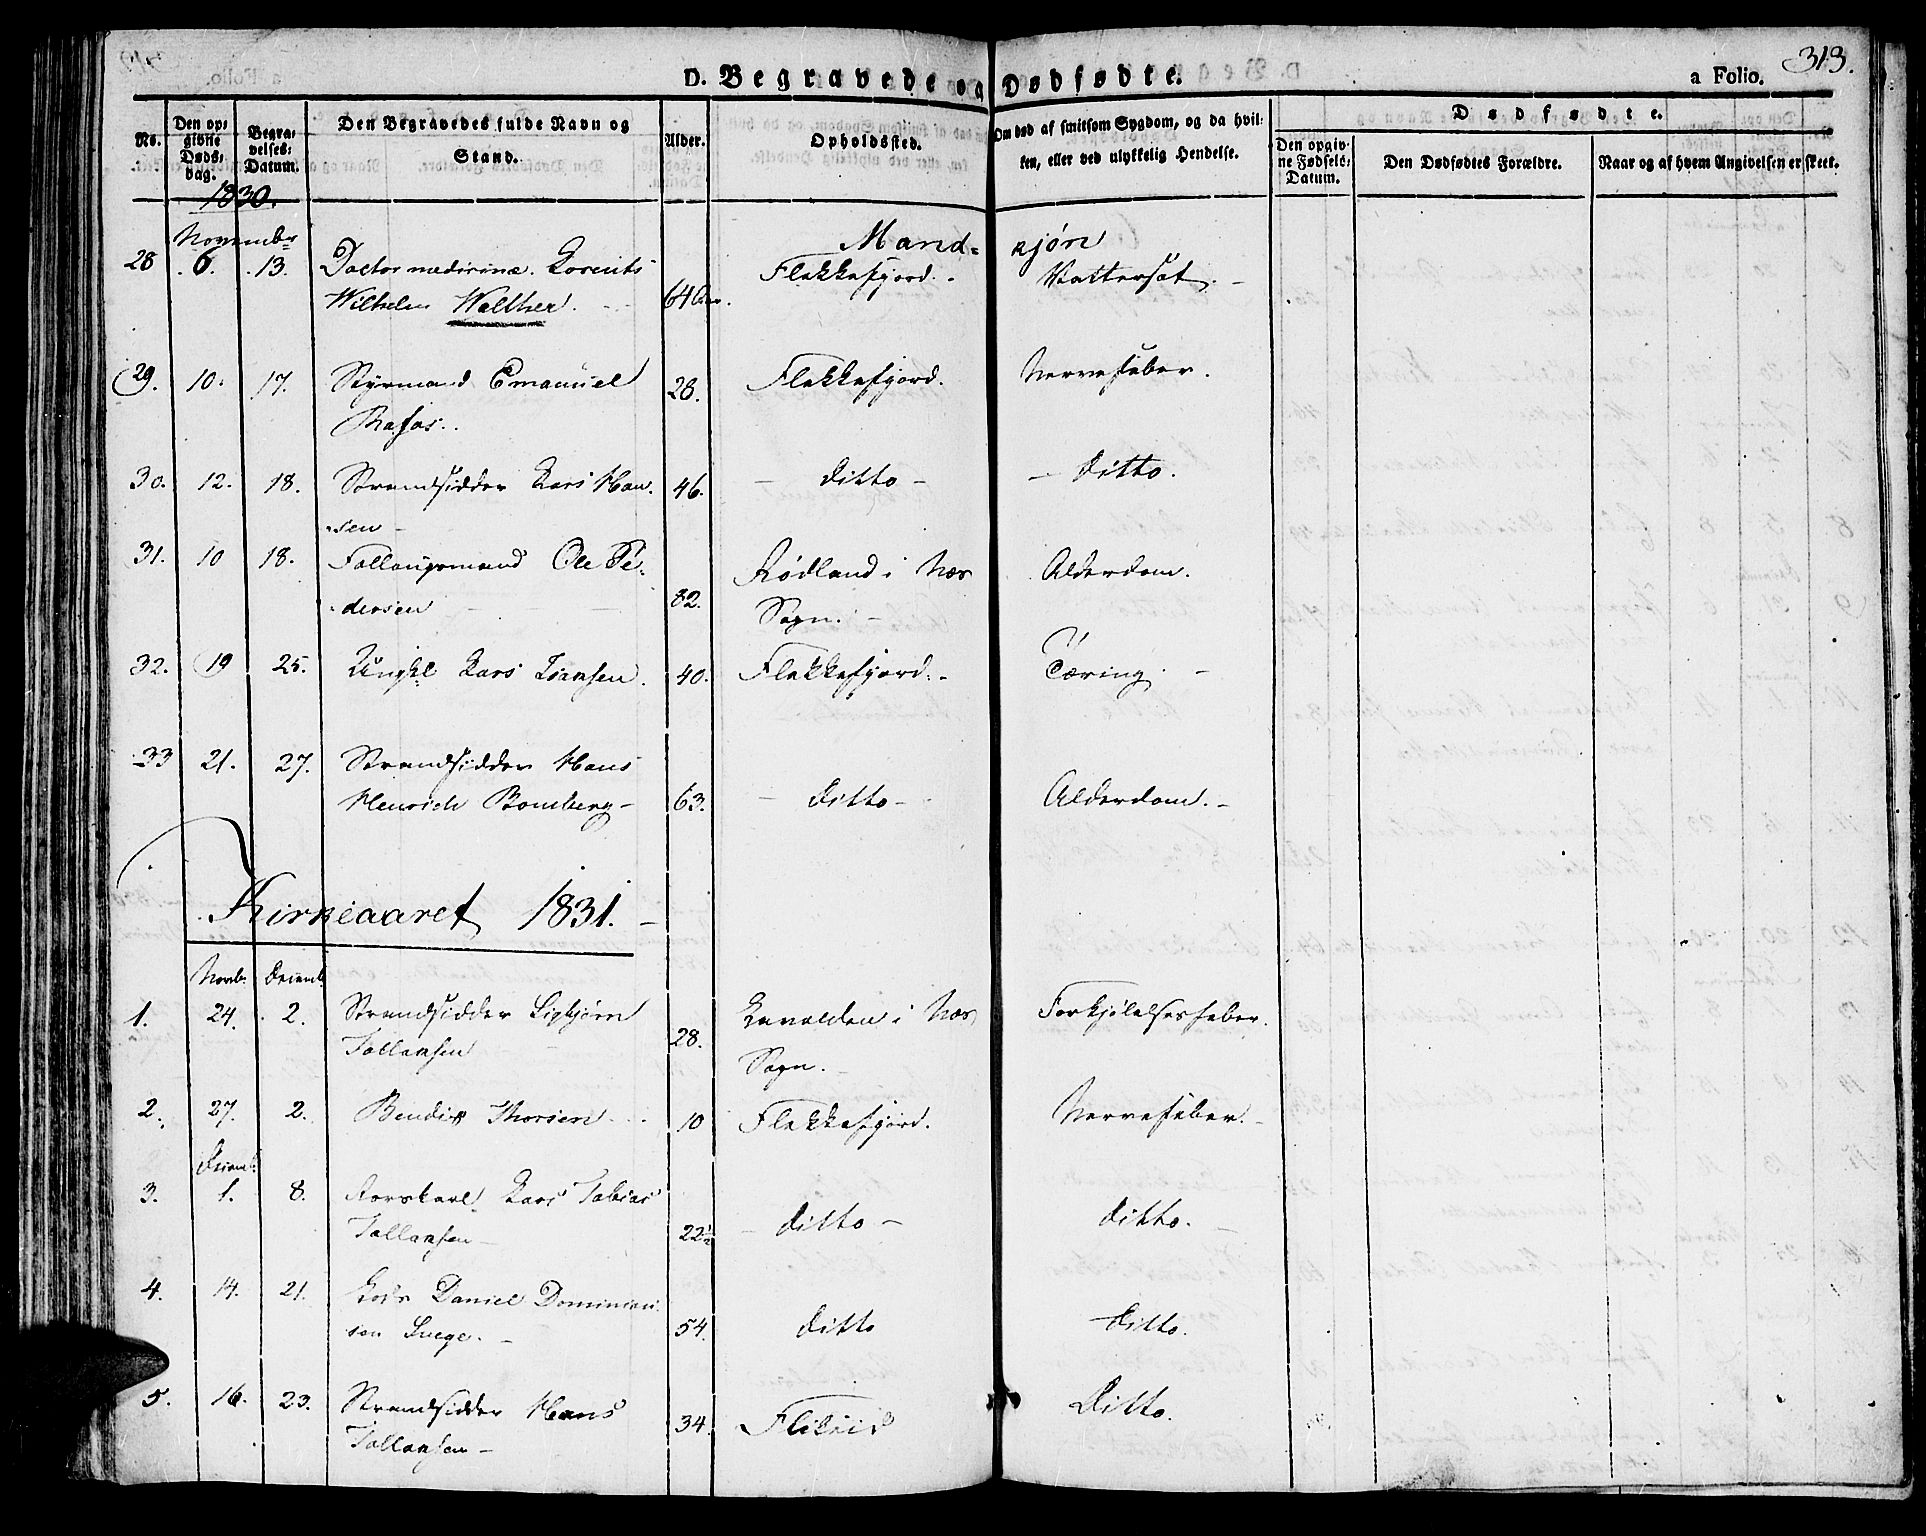 313.
D. Begravede og Dødfødte.
a Folio.
No.
Den opgivne Døds-dag.
Begravelses-Datum.
Den Begravedes fulde Navn og Stand.
Alder.
Opholdssted.
Om død af smitsom Sygdom, og da hvilken, eller ved ulykkelig Hendelse.
Dødfødte.
Den opgivne Fødsels-Datum.
Den Dødfødtes Forældre.
Naar og af hvem Angivelsen er skeet.
1830.
Novembr
Mand-kjøn
28 6. 13. Doctor medicinæ Lorents Flekkefjord. Vattersot.
Wilhelm Walther. 64 Aar.
29. 10. 17. Styrmand Emanuel 28. Flekkefjord. Nervefeber.
30. 12. 18. Strandsidder Lars Han- 46. Ditto Ditto.
sen
31. 10 18. Ole Pe- Rødland i Næs Alderdom.
dersen 82. Sogn.
32. 19 25. Ungkl Lars 40. Flekkefjord. Tæring.
33 21. 27. Strandsidder Hans
Henrich Bomberg 63. Ditto Alderdom.
Kirkeaaret 1831.
Novb. Decemb.
1. 24. 2. Strandsidder Sigbjørn i Næs Forkjølelsesfeber.
Tollaksen 28. Sogn.
2. 27. 2. Bendix Thorsen 10 Flekkefjord. Nervefeber.
Decemb.
3. 1. 8. Lars Tobias
Tollaksen 22½ Ditto Ditto.
4. 14. 21. Lods Daniel
sen 54. Ditto Ditto.
5. 16. 23. Strandsidder Hans
Tollaksen 34. Ditto.